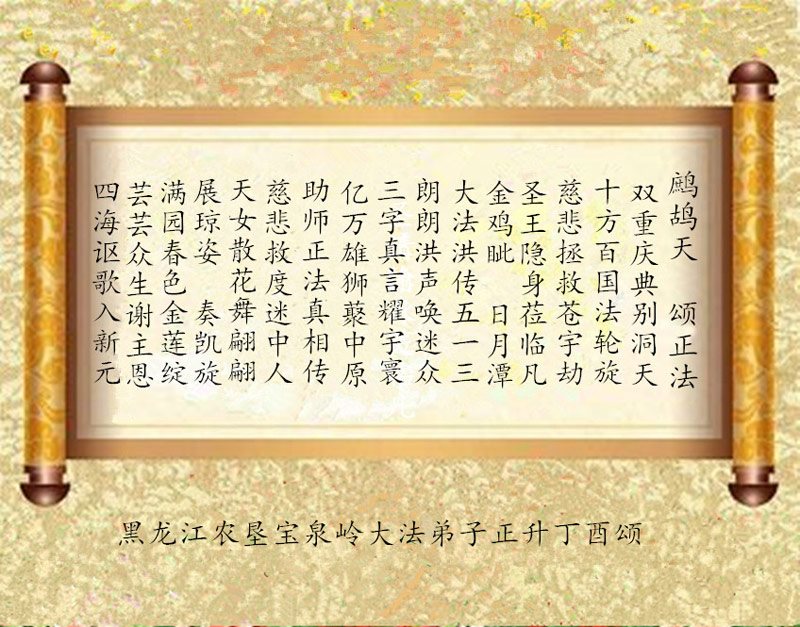 鹧鸪天 颂正法
双重庆典别洞天
十方百国法轮旋
慈悲拯救苍宇劫
圣王隐身莅临凡
金鸡眦 日月潭
大法洪传五一三
朗朗洪声唤迷众
三字真言耀宇寰
亿万雄狮聚中原
助师正法真相传
慈悲救度迷中人
天女散花舞翩翩
展琼姿 奏凯旋
满园春色金莲绽
芸芸众生谢主恩
四海讴歌入新元
黑龙江农垦宝泉岭大法弟子正升丁酉颂